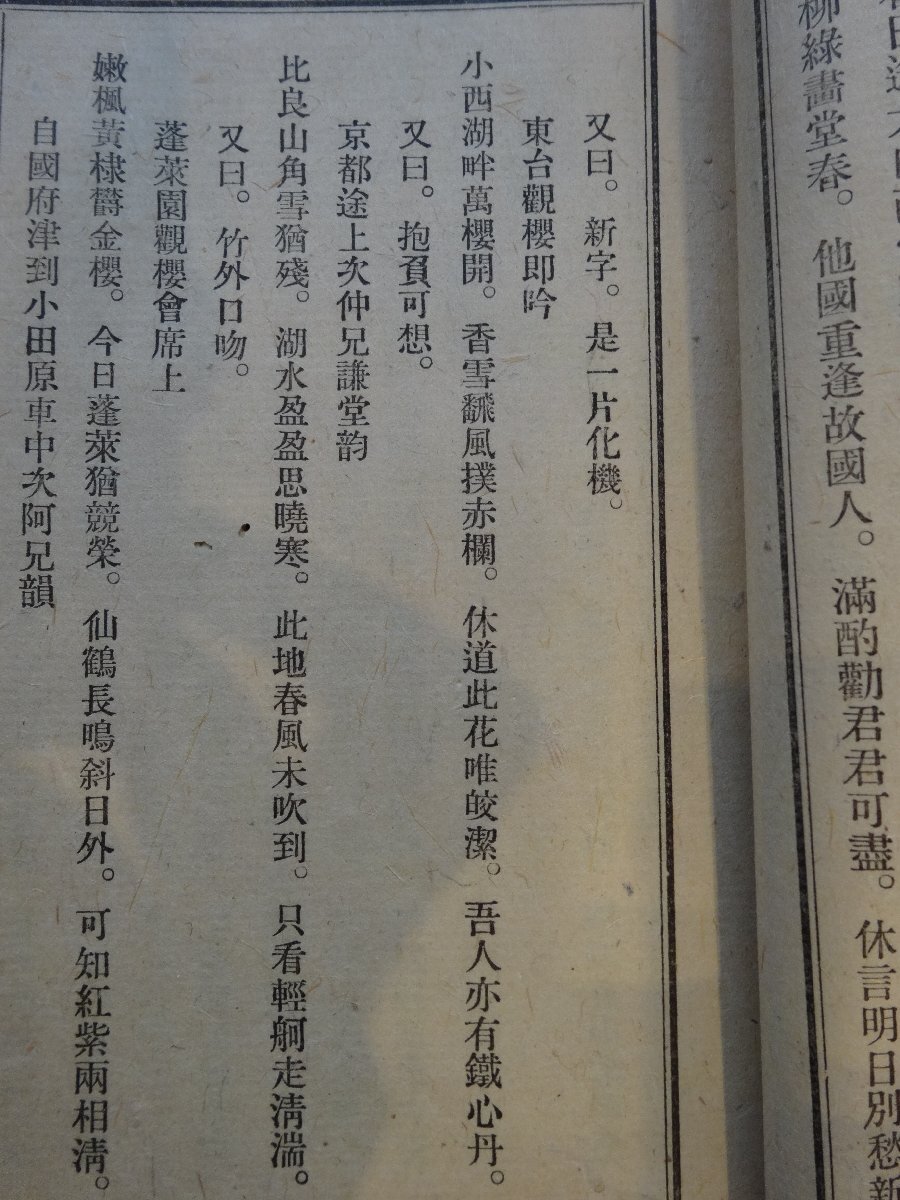 柳綠畵堂春。他國重逢故國人。滿酌勸君君可盡。休言明日別愁新
又曰。新字。是一片化機。
東台觀櫻卽吟
小西湖畔萬櫻開。香雪飜風撲赤欄。休道此花唯皎潔。吾人亦有鐵心丹。
又曰。抱負可想。
京都途上次仲兄謙堂韵
比良山角雪猶殘。湖水盈盈思曉寒。此地春風未吹到。只看輕舸走淸湍。
又曰。竹外口吻。
蓬萊園觀櫻會席上
嫩楓黃棣欝金櫻。今日蓬萊猶競榮。仙鶴長鳴斜日外。可知紅紫兩相淸。
自國府津到小田原車中次阿兄韻